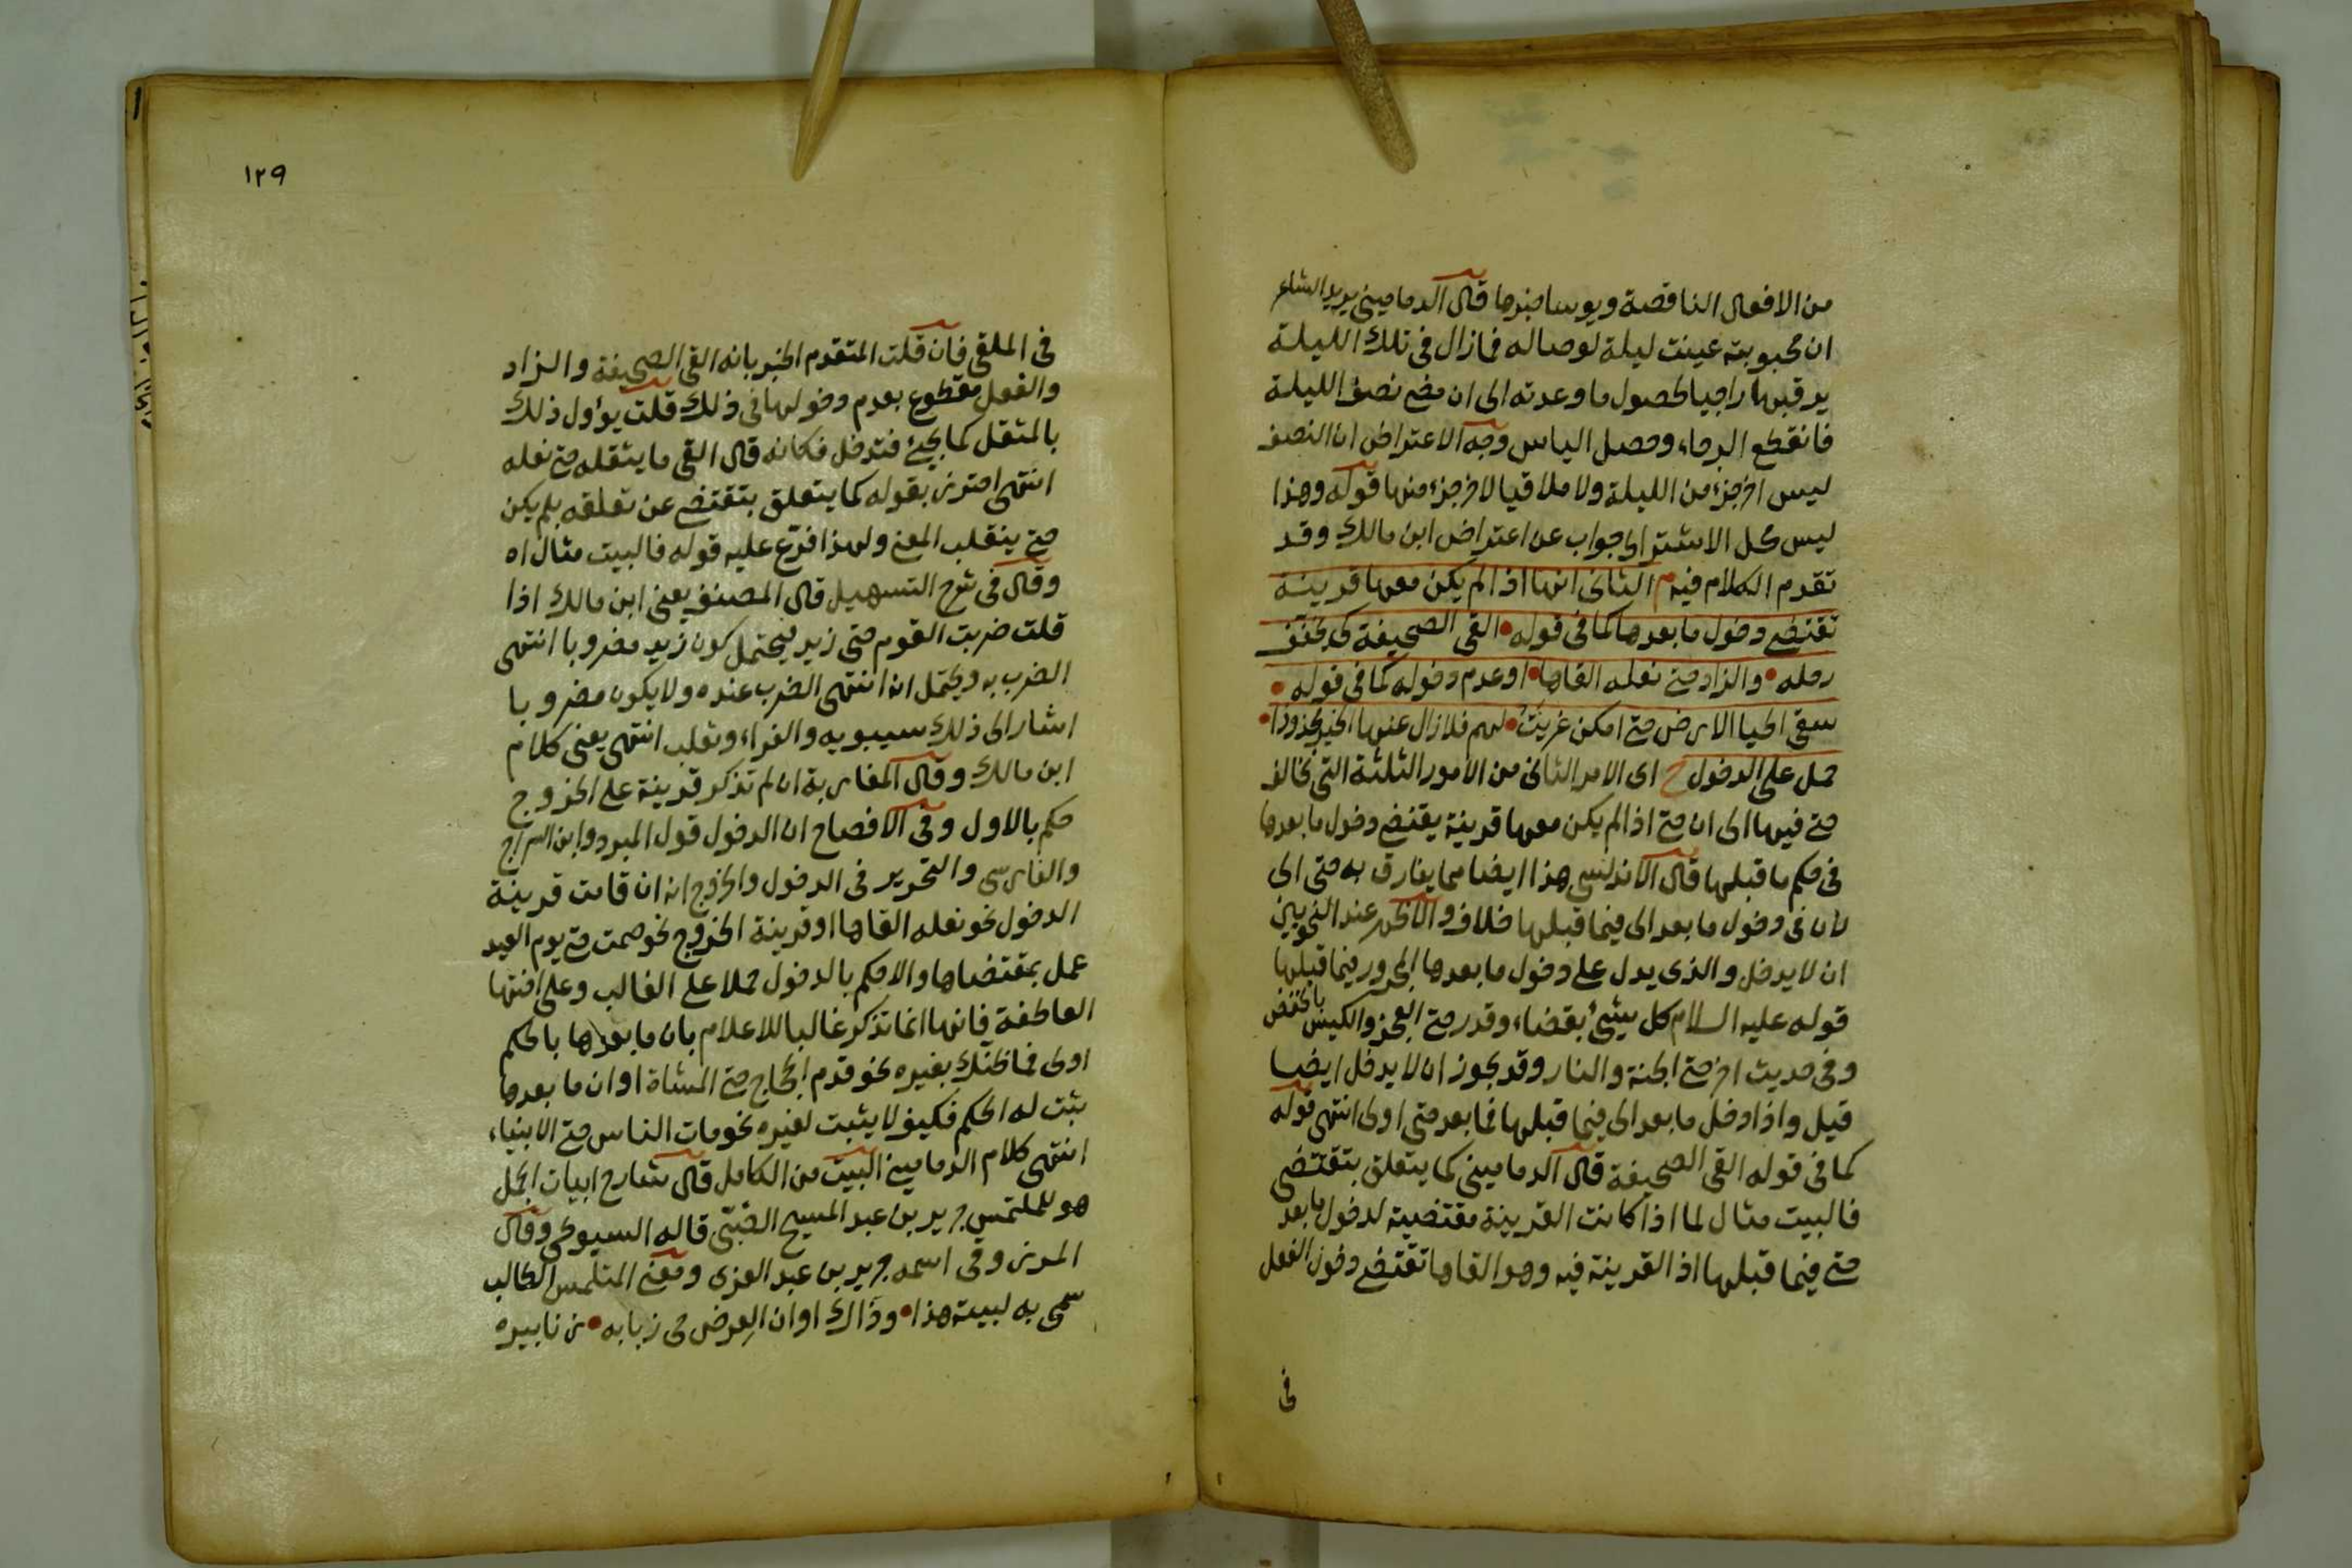 من الافعال الناقصة ويوسا خبرها قال الدماميني يريد الشاعر
ان محبوبته عينت ليلة لوصاله فمازال في تلك الليلة
يرقبها راجيا لحصول ما وعدته الى ان مضى نصف الليلة
فانقطع الرجاء وحصل الياس وجه الاعتراض ان النصف
ليس اخر جزء من الليلة ولا ملاقيا لاخر جزء منها قوله وهذا
ليس محل الاشتراط جواب عن اعتراض ابن مالك وقد
تقدم الكلام فيه م الثاني انها اذا لم يكن معها قرينة
تقتضى دخول ما بعدها كما في قوله • القى الصحيفة كى يخفف
رحله • والزاد حتى نعله القاها • او عدم دخوله كما في قوله •
سقى الحيا الارض حتى امكن عزيت • لهم فلا زال عنها الخير مجذوذا •
حمل على الدخول ح اى الامر الثاني من الامور الثلثة التي تخالف
حتى فيها الى ان حتى اذا لم يكن معها قرينة يقتضى دخول ما بعدها
في حكم ما قبلها قال الاندلسي هذا ايضا مما يفارق به حتى الى
لان في دخول ما بعد الى فيما قبلها خلاف والاظهر عند النحويين
ان لا يدخل والذى يدل على دخول ما بعدها المجرور فيما قبلها
قوله عليه السلام كل شيئ بقضاء وقدر حتى العجز والكيس بالخفض
وفي حديث اخر حتى الجنة والنار وقد يجوز ان لا يدخل ايضا
قيل واذا دخل ما بعد الى فيما قبلها فما بعد حتى اولى انتهى قوله
كما في قوله القى الصحيفة قال الدماميني كما يتعلق بتقتضى
فالبيت مثال لما اذا كانت القرينة مقتضية لدخول ما بعد
حتى فيما قبلها اذ القرينة فيه وهو القاها تقتضى دخول الفعل
في
١٢٩
في الملقى فان قلت المتقدم الخبر بانه القى الصحيفة والزاد
والفعل مقطوع بعدم دخولها في ذلك قلت يؤول ذلك
بالمثقل كما يجئ فتدخل فكانه قال القى ما يثقله حتى نعله
انتهى احترز بقوله كما يتعلق بتقتضى عن تعلقه بلم يكن
حتى ينقلب المعنى ولهذا فرّع عليه قوله فالبيت مثال اه
وقال في شرح التسهيل قال المصنف يعنى ابن مالك اذا
قلت ضربت القوم حتى زيد فيحتمل كون زيد مضروبا انتهى
الضرب به ويحتمل ان انتهى الضرب عنده ولا يكون مضروبا
اشار الى ذلك سيبويه والفراء وثعلب انتهى يعنى كلام
ابن مالك وقال المغاربة ان لم تذكر قرينة على الخروج
حكم بالاول وفي الافصاح ان الدخول قول المبرد وابن السراج
والفارسي والتحرير في الدخول والخروج انه ان قامت قرينة
الدخول نحو نعله القاها او قرينة الخروج نحو صمت حتى يوم العيد
عمل بمقتضاها والا حكم بالدخول حملا على الغالب وعلى اختها
العاطفة فانها انما تذكر غالبا للاعلام بان ما بعدها بالحكم
اولى فما ظنك بغيره نحو قدم الحجاج حتى المشاة او ان ما بعدها
يثبت له الحكم فكيف لا يثبت لغيره نحو مات الناس حتى الانبياء
انتهى كلام الدماميني البيت من الكامل قال شارح ابيات الجمل
هو للملتمس جرير بن عبد المسيح الضبّي قاله السيوطي وقال
المرزوقى اسمه جرير بن عبد العزى ومعنى المتلمس الطالب
سمى به لبيته هذا • وذاك اوان العرض حى ذبابه • زنابيره